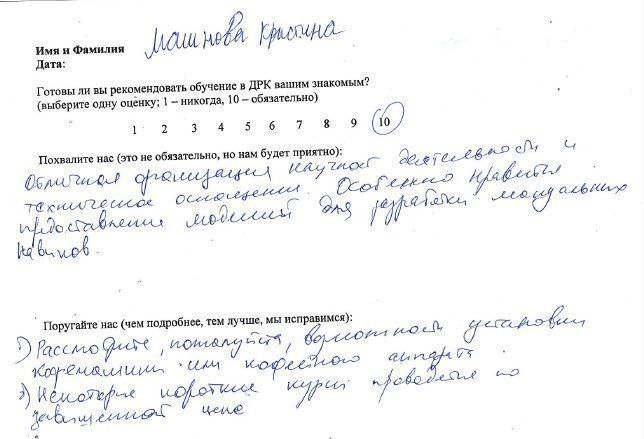 Имя и Фамилия Машнова Кристина
Дата:
Готовы ли вы рекомендовать обучение в ДРК вашим знакомым?
(выберите одну оценку; 1 – никогда, 10 – обязательно)
1 2 3 4 5 6 7 8 9 10
Похвалите нас (это не обязательно, но нам будет приятно):
Отличная организация научной деятельности и
техническое оснащение. Особенно нравится
предоставление моделей для разработки мануальных
навыков.
Поругайте нас (чем подробнее, тем лучше, мы исправимся):
1) Рассмотрите, пожалуйста, возможность установки
кофемашины или кофейного аппарата
2) Некоторые короткие курсы проводятся по
завышенной цене